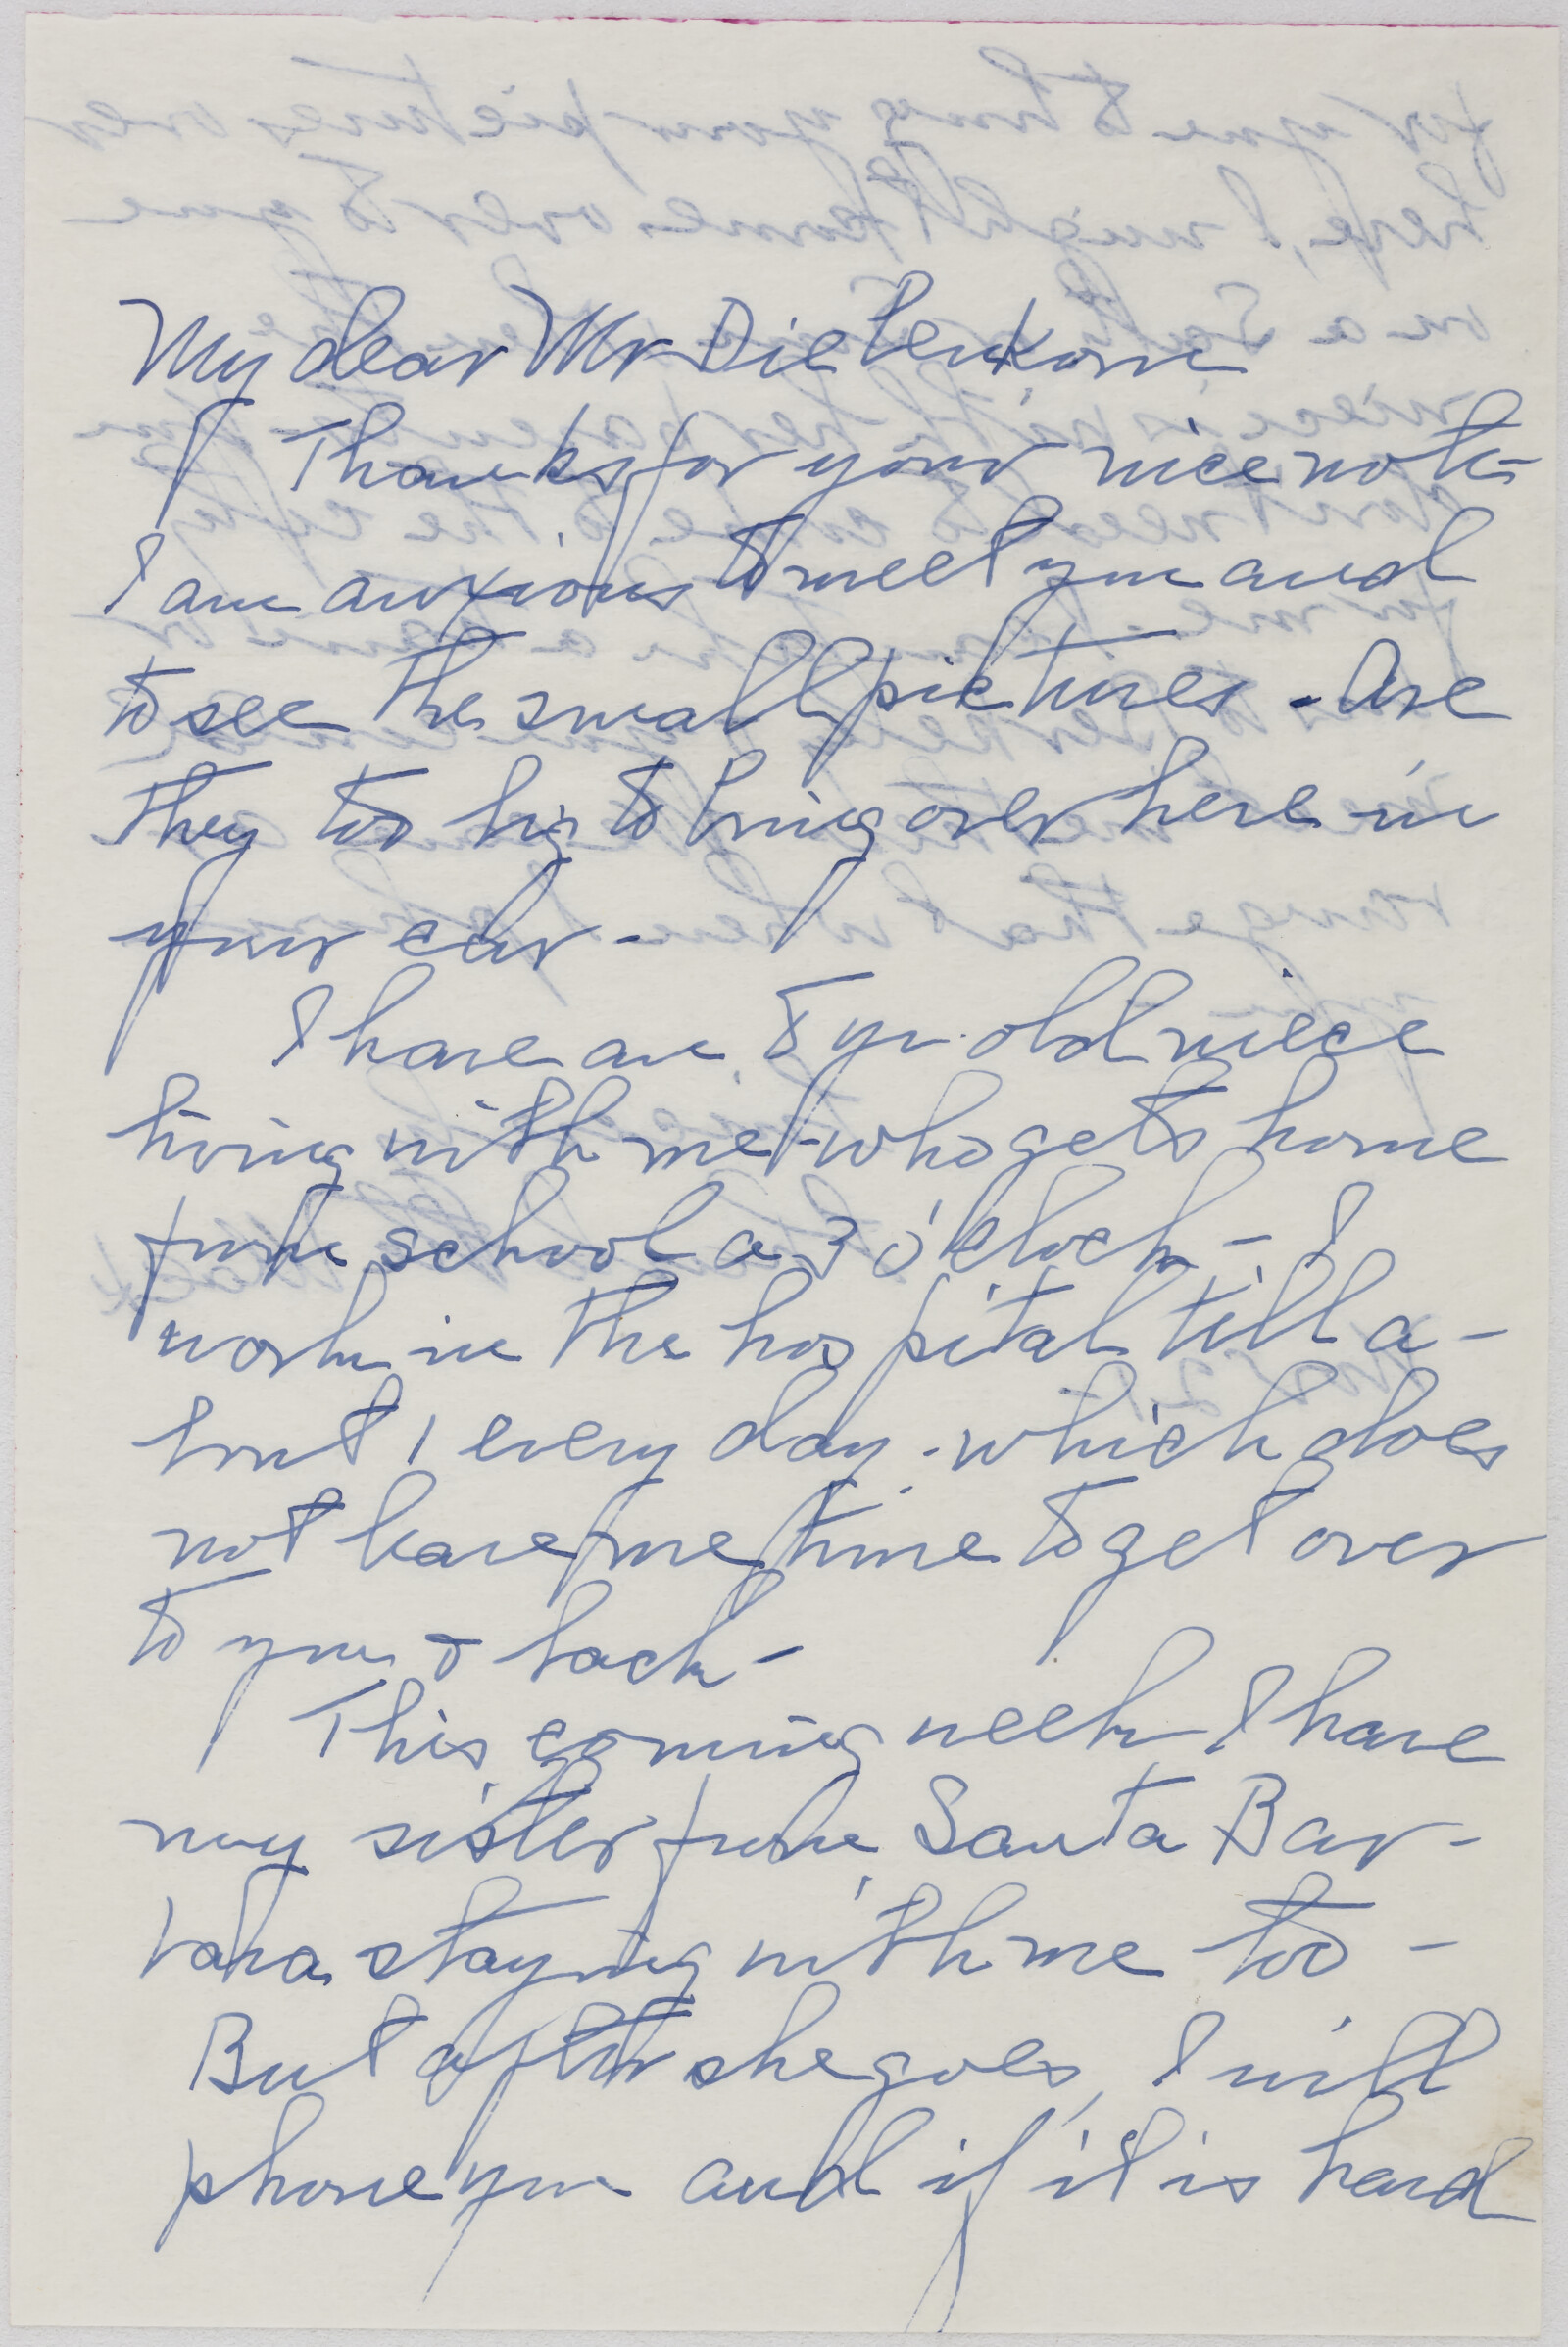 My dear Mr Diebenkorn
Thanks for your nice note -
I am anxious to meet you and
to see the small pictures - Are
they too big to bring over here in
your car -
I have an 8 yr. old niece
living with me - who gets home
from school a 3 o'clock - I
work in the hospital till a-
bout 1 every day - which does
not leave me time to get over
to you & back -
This coming week I have
my sister from Santa Bar-
bara staying with me too -
But after she goes, I will
phone you and if it is hard